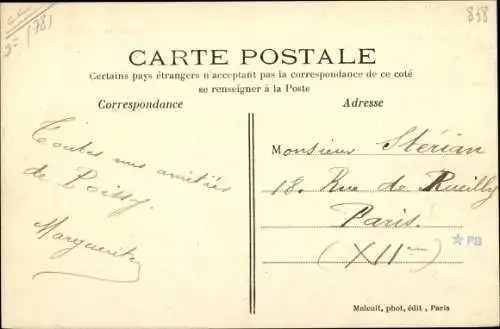 (781
838
CARTE POSTALE
Certains pays étrangers n'acceptant pas la correspondance de ce coté
se renseigner à la Poste
Correspondance
Adresse
Toutes mes amitiés
de Poissy.
Marguerite
Monsieur Stérian
18. Rue de Reuilly
Paris.
(XIIem)
*PB
Malcuit, phot, édit, Paris